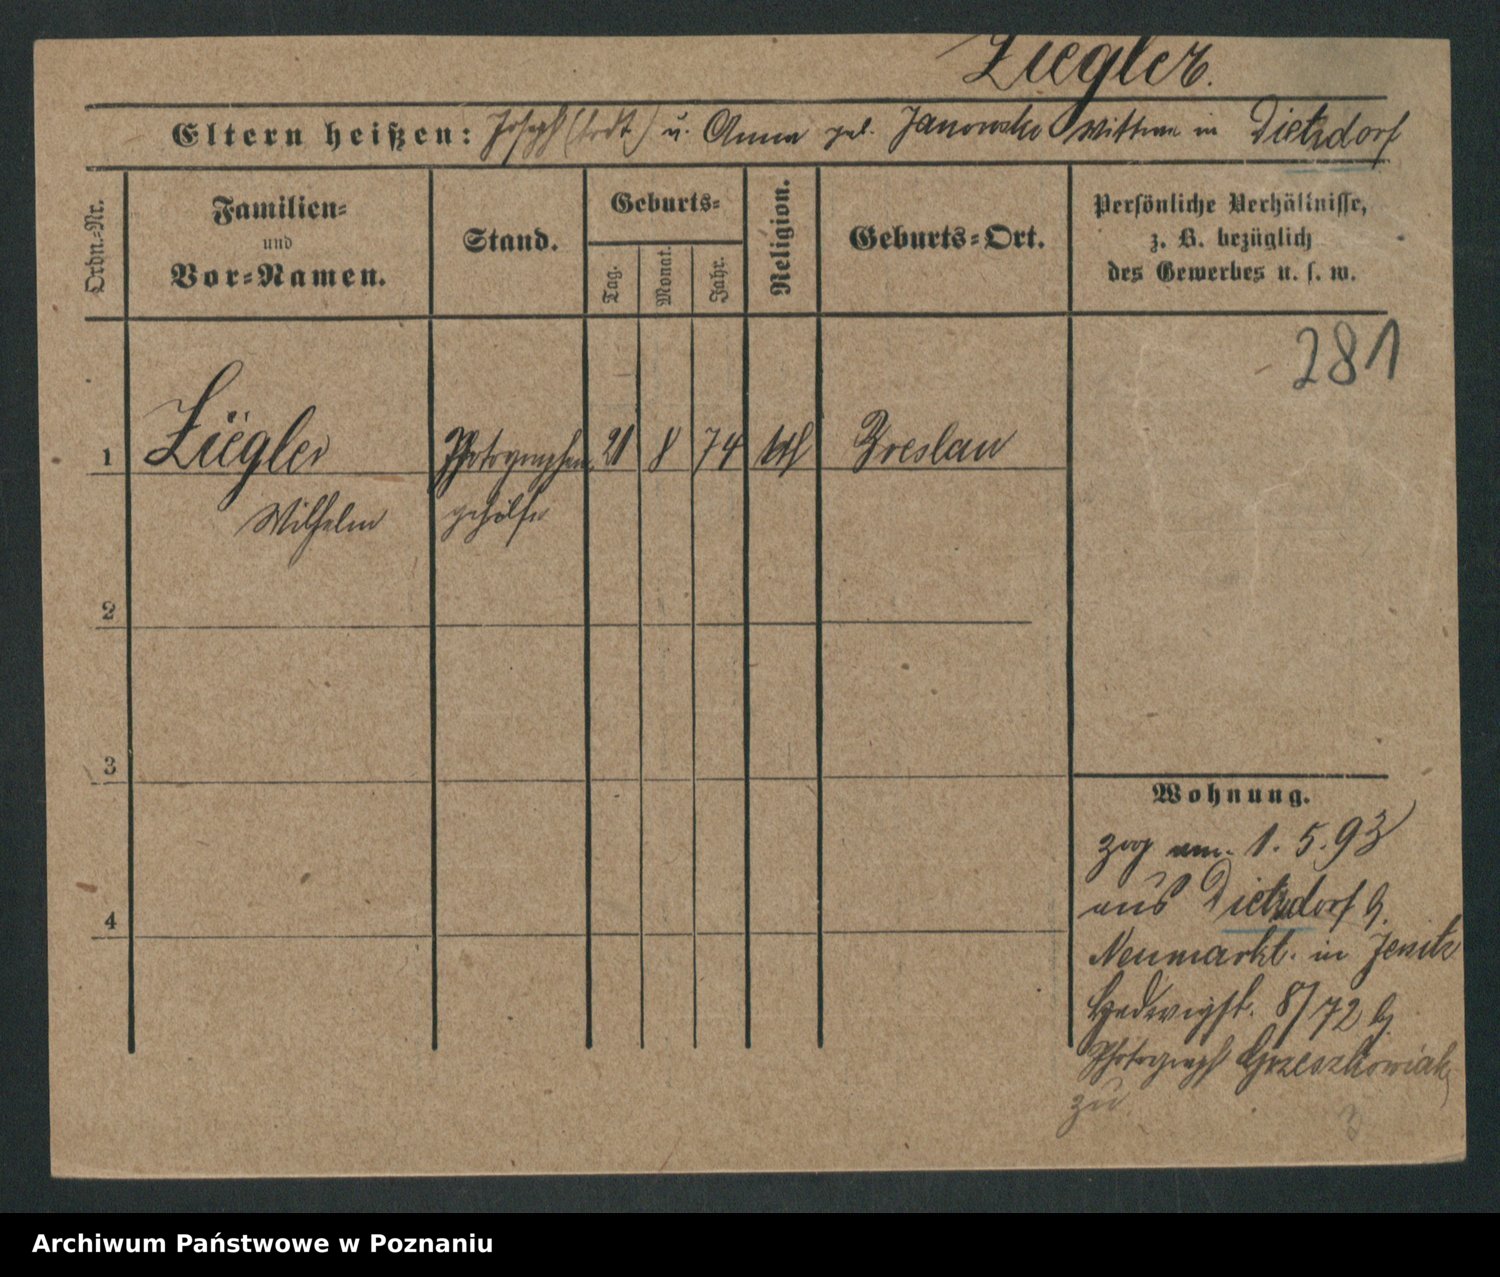 Ziegler.
Eltern heißen: Joseph (todt) u. Anna geb. Janowsko Wittwe in Dietzdorf
Ordn.-Nr.
Familien-
und
Vor-Namen.
Stand.
Geburts-
Tag.
Monat.
Jahr.
Religion.
Geburts-Ort.
Persönliche Verhältnisse,
z. B. bezüglich
des Gewerbes u. s. w.
281
1 Ziegler Photographen 21 8 74 kth Breslau
Wilhelm gehilfe
2
3
4
Wohnung.
zog am 1. 5. 93
aus Dietzdorf b.
Neumarkt. in Jersitz
Hedwigst. 8/72 b.
Photograph Grzeszkowiak
zu.
Archiwum Państwowe w Poznaniu